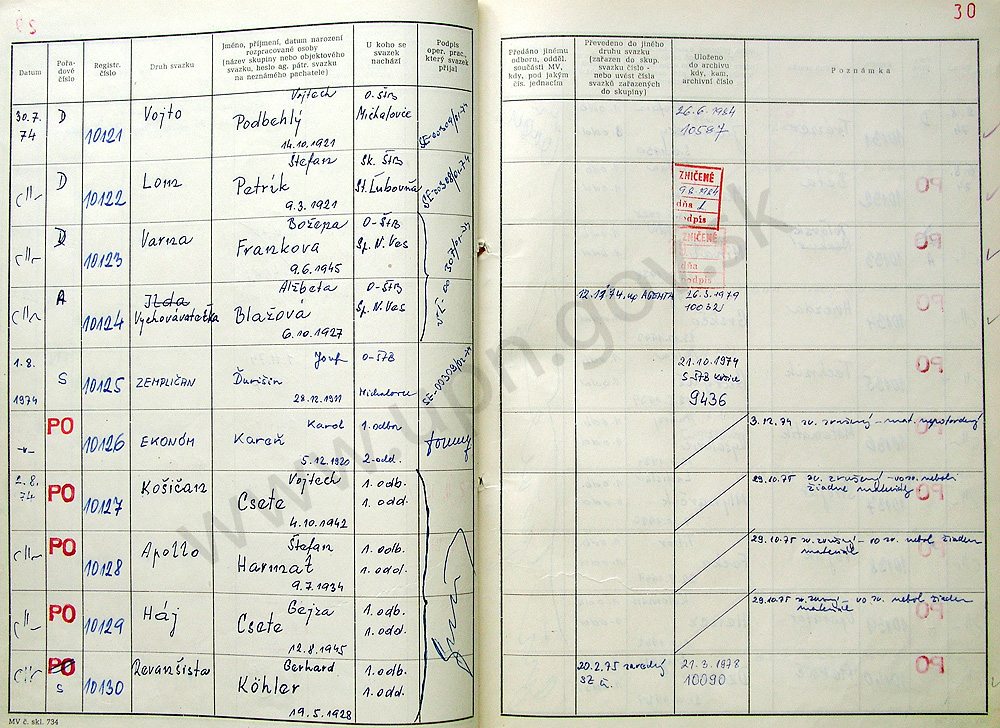 30
Datum
Pořadové číslo
Registr. číslo
Druh svazku
Jméno, příjmení, datum narození rozpracované osoby
(název skupiny nebo objektového svazku, heslo ag. pátr. svazku na neznámého pachatele)
U koho se svazek nachází
Podpis oper. prac., který svazek přijal
Předáno jinému odboru, odděl. součásti MV, kdy, pod jakým čís. jednacím
Převedeno do jiného druhu svazku (zařazen do skup. svazku číslo - nebo uvést čísla svazků zařazených do skupiny)
Uloženo do archivu kdy, kam, archivní číslo
Poznámka
30.7. 74 D 10121 Vojto Vojtech Podbehlý 14.10.1921 O-ŠtB Michalovce
26.6.1984 10587
D 10122 Lom Štefan Petrik 9.3.1921 Sk. ŠtB St. Ľubovňa
ZNIČENÉ
dňa 1
podpis
D 10123 Varna Božena Frankova 9.6.1945 O-ŠtB Sp. N. Ves
ZNIČENÉ
dňa
podpis
A 10124 Ilda Vychovávateľka Alžbeta Blažová 6.10.1927 O-ŠtB Sp. N. Ves
12.11.74 up AGENTA 26.3.1979 10032
1.8. 1974 S 10125 ZEMPLIČAN Jozef Ďurišin 28.12.1911 O-ŠTB Michalovce
21.10.1974 S-ŠTB Košice 9436
PO 10126 EKONÓM Karol Kareň 5.12.1920 1.odbor 2-odd.
3.12.74 zv. zrušený - mat.
2.8. 74 PO 10127 Košičan Vojtech Csete 4.10.1942 1. odb. 1. odd.
29.10.75 zv. zrušený - vo zv. neboli žiadne materiály
PO 10128 Apollo Štefan Harmat 9.7.1934 1. odb. 1. odd.
29.10.75 zv. zrušený - vo zv. nebol žiaden materiál
PO 10129 Háj Gejza Csete 12.8.1945 1. odb. 1. odd.
29.10.75 - vo zv. nebol žiaden materiál
PO S 10130 Revanšista Gerhard Köhler 19.5.1928 1. odb. 1. odd.
20.2.75 21.3.1978 10090
MV č. skl. 734
www.upn.gov.sk